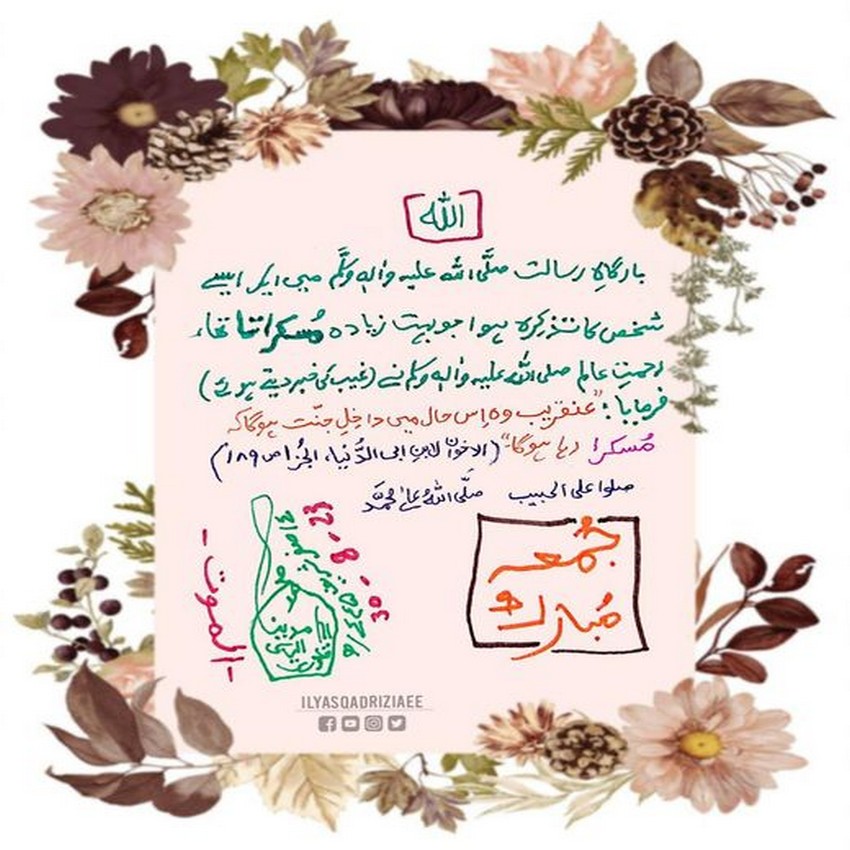 اللہ
بارگاہِ رسالت صلَّی اللہ علیہ واٰلہٖ وَسَلَّم میں ایک ایسے
شخص کا تذکرہ ہوا جو بہت زیادہ مُسکراتا تھا،
رحمتِ عالم صلی اللہ علیہ واٰلہٖ وسلم نے (غیب کی خبر دیتے ہوئے)
فرمایا: "عنقریب وہ اِس حال میں داخلِ جنّت ہوگا کہ
مُسکرا رہا ہوگا" (الاخوان لابن ابی الدُّنیا، الجُزا ص ۱۸۹)
صلوا علی الحبیب صلَّی اللہُ علٰی محمَّد
جُمعہ
مُبارک
30-8-23
الموت
ILYASQADRIZIAEE